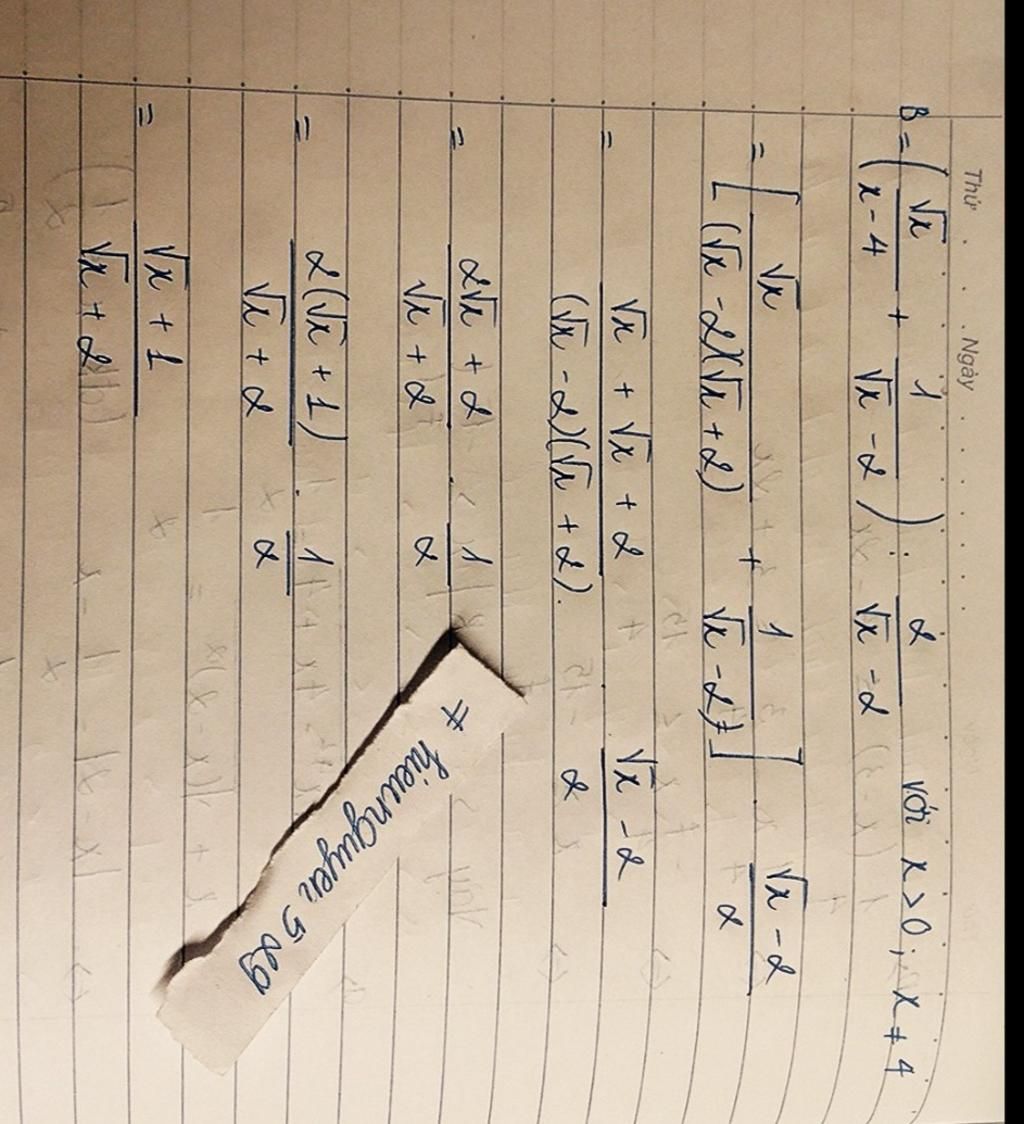 Thứ . . . . . Ngày
B = ( √x / (x - 4) + 1 / (√x - 2) ) : 2 / (√x - 2) với x > 0 ; x ≠ 4
= [ √x / ((√x - 2)(√x + 2)) + 1 / (√x - 2) ] . (√x - 2) / 2
= (√x + √x + 2) / ((√x - 2)(√x + 2)) . (√x - 2) / 2
= (2√x + 2) / (√x + 2) . 1 / 2
= 2(√x + 1) / (√x + 2) . 1 / 2
= (√x + 1) / (√x + 2)
# hieunguyen 529